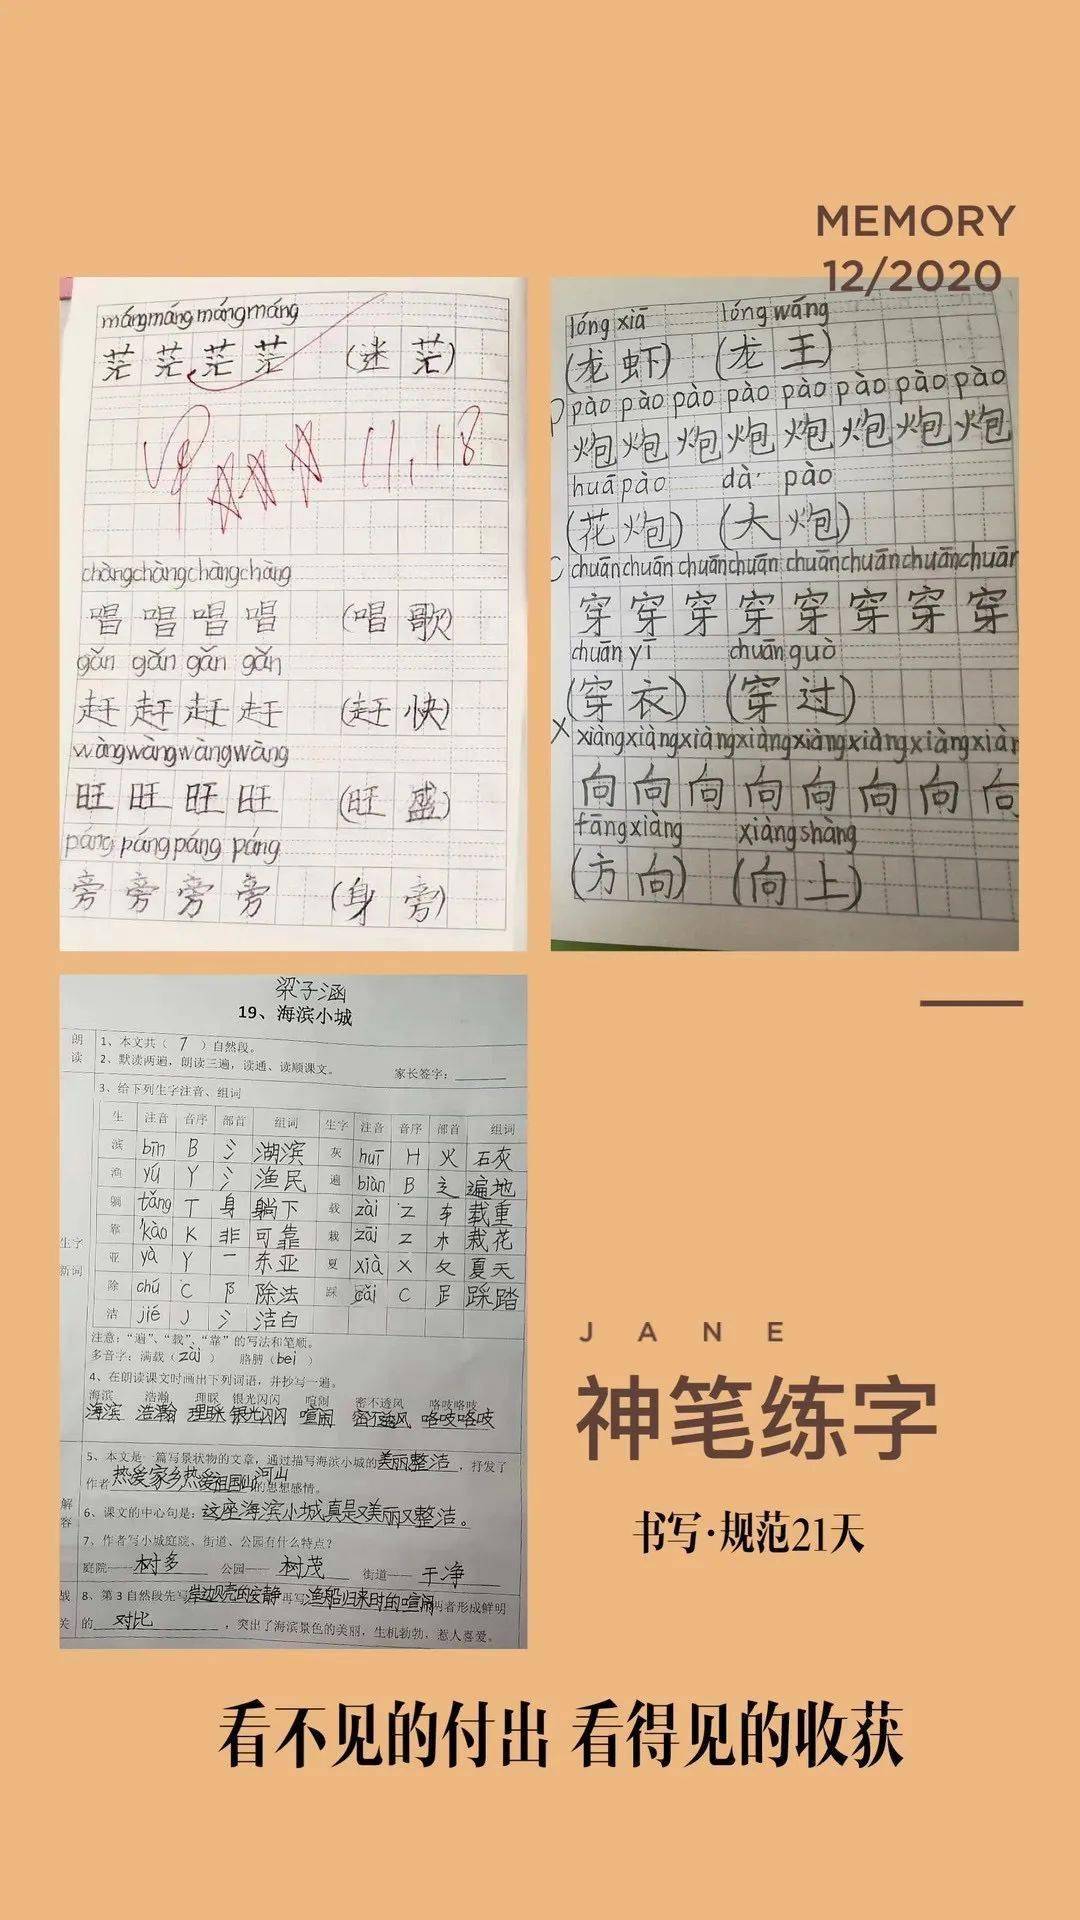 MEMORY
12/2020
mángmáng mángmáng
茫 茫 茫 茫 (迷 茫)
甲 11.18
chàngchàngchàngchàng
唱 唱 唱 唱 (唱 歌)
gǎn gǎn gǎn gǎn
赶 赶 赶 赶 (赶 快)
wàngwàngwàngwàng
旺 旺 旺 旺 (旺 盛)
páng páng páng páng
旁 旁 旁 旁 (身 旁)
lóng xiā lóng wáng
(龙 虾) (龙 王)
pào pào pào pào pào pào pào pào
炮 炮 炮 炮 炮 炮 炮 炮
huā pào dà pào
(花 炮) (大 炮)
C chuān chuān chuān chuān chuān chuān chuān chuān
穿 穿 穿 穿 穿 穿 穿 穿
chuān yī chuān guò
(穿 衣) (穿 过)
X xiàng xiàng xiàng xiàng xiàng xiàng xiàng xiàn
向 向 向 向 向 向 向 向
fāng xiàng xiàng shàng
(方 向) (向 上)
梁子涵
19、海滨小城
朗读
1、本文共( 7 )自然段。
2、默读两遍，朗读三遍，读通、读顺课文。 家长签字：
3、给下列生字注音、组词
生 注音 音序 部首 组词 生字 注音 音序 部首 组词
滨 bīn B 氵 湖滨 灰 huī H 火 石灰
渔 yú Y 氵 渔民 遍 biàn B 辶 遍地
躺 tǎng T 身 躺下 载 zài Z 车 载重
靠 kào K 非 可靠 栽 zāi Z 木 栽花
亚 yà Y 一 东亚 夏 xià X 夂 夏天
除 chú C 阝 除法 踩 cǎi C 𧾷 踩踏
洁 jié J 氵 洁白
生字
新词
注意：“遍”、“载”、“靠”的写法和笔顺。
多音字：满载（zài） 胳膊（bei）
4、在朗读课文时画出下列词语，并抄写一遍。
海滨 浩瀚 理睬 银光闪闪 喧闹 密不透风 咯吱咯吱
海滨 浩瀚 理睬 银光闪闪 喧闹 密不透风 咯吱咯吱
5、本文是一篇写景状物的文章，通过描写海滨小城的美丽整洁，抒发了
作者热爱家乡热爱祖国山河山的思想感情。
解
容
6、课文的中心句是：这座海滨小城真是又美丽又整洁。
7、作者写小城庭院、街道、公园有什么特点？
庭院——树多 公园——树茂 街道——干净
战
关
8、第3自然段先写岸边贝壳的安静再写渔船归来时的喧闹两者形成鲜明
的对比，突出了海滨景色的美丽，生机勃勃，惹人喜爱。
JANE
神笔练字
书写·规范21天
看不见的付出 看得见的收获